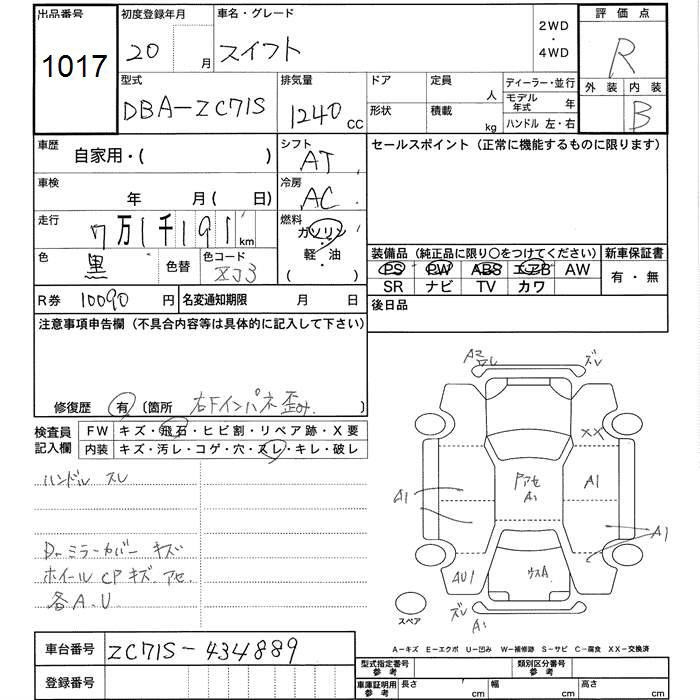 出品番号 初度登録年月 車名・グレード 2WD ・ 4WD 評価点
1017 20 月 スイフト R
型式 排気量 ドア 定員 人 ディーラー・並行 外装 内装
DBA-ZC71S 1240 cc 形状 積載 kg モデル年式 年 B
ハンドル 左・右
車歴 自家用・( ) シフト AT セールスポイント(正常に機能するものに限ります)
車検 年 月 ( 日) 冷房 AC
走行 7万1千191 km 燃料 ガソリン・軽油 ( )
色 黒 色替 色コード ZJ3
装備品(純正品に限り○をつけてください) 新車保証書
PS PW ABS エアB AW 有・無
SR ナビ TV カワ
R券 10090 円 名変通知期限 月 日 後日品
注意事項申告欄(不具合内容等は具体的に記入して下さい)
修復歴 有 〔箇所 右Fインパネ歪み. 〕
検査員記入欄 FW キズ・飛石・ヒビ割・リペア跡・X要
内装 キズ・汚レ・コゲ・穴・スレ・キレ・破レ
ハンドル スレ
Drミラーカバー キズ
ホイールCPキズ.アセ.
各A.U.
ズレ
XX
Fアセ
A1
A1
A1
A1
AU1
ウスA
ズレ
A1
スペア
A-キズ E-エクボ U-凹み W-補修跡 S-サビ C-腐食 XX-交換済
車台番号 ZC71S-434889
登録番号
型式指定番号 参考 類別区分番号 参考
車庫証明用 参考 長さ cm 幅 cm 高さ cm